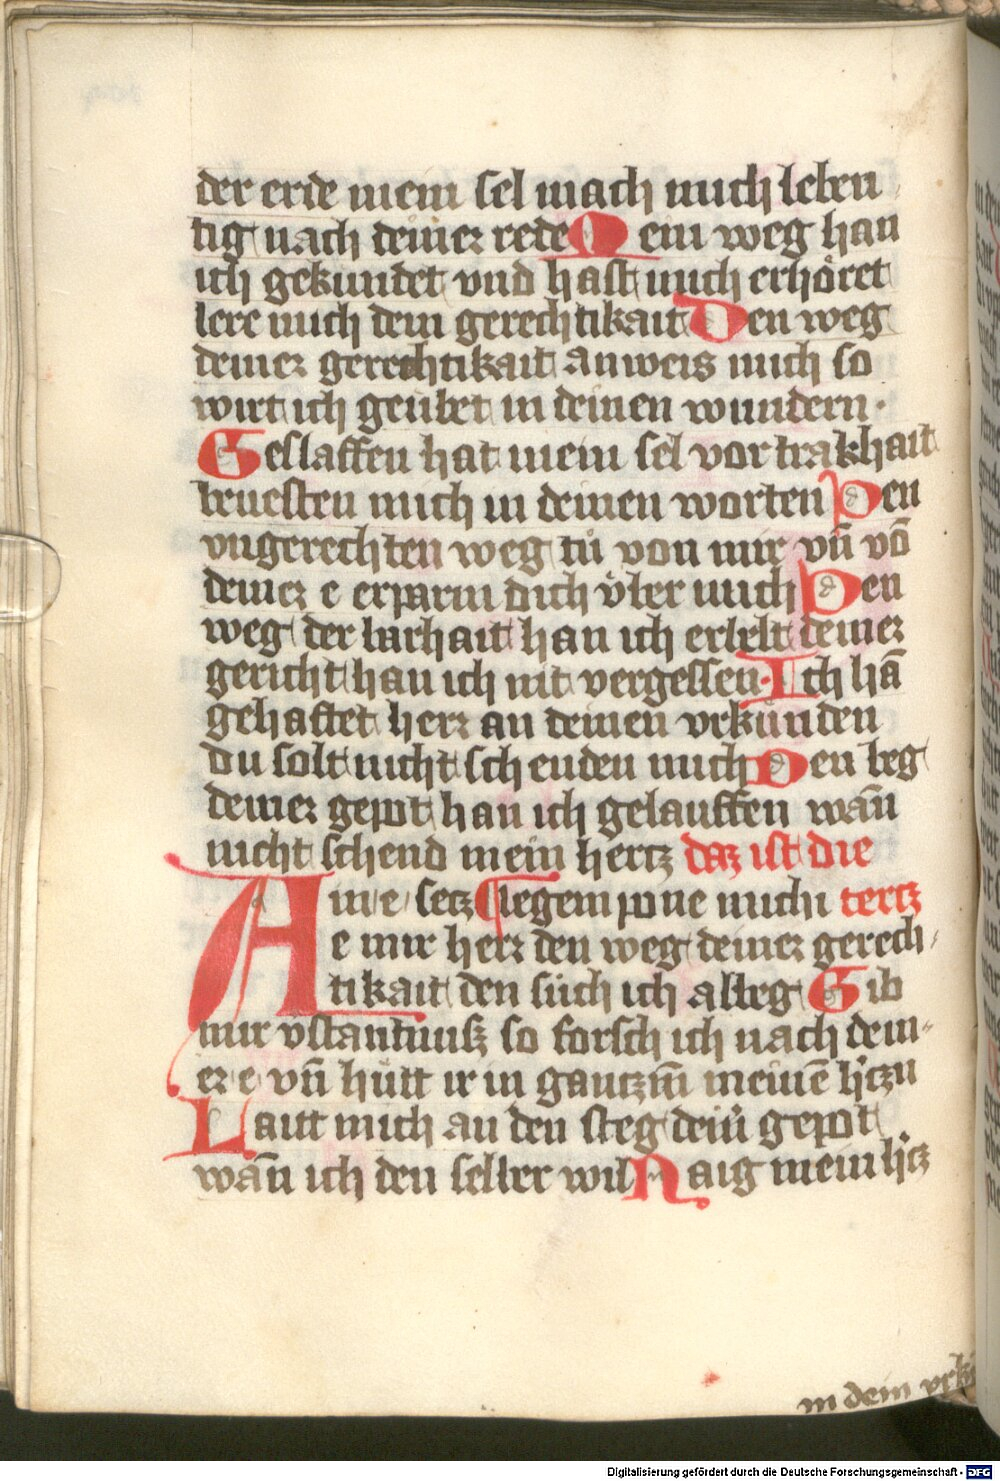 der erde mein sel mach mich leben
tig nach deiner rede Mein weg han
ich gekundet vnd hast mich erhöret
lere mich dein gerechtikait Den weg
deiner gerechtikait anweis mich so
wirt ich geübet in deinen wundern ·
Geslaffen hat mein sel vor trakhait
beuesten mich in deinen worten Den
vngerechten weg tů von mir vn̄ vō
deiner e erparm dich vͤber mich Den
weg der barhait han ich erbelt deiner
gericht han ich nit vergessen · Ich hā
gehaftet herr an deinen vrkünden
du solt nicht schenden mich Den beg
deiner gepot han ich gelauffen wan̄
nicht schend mein hertz daz ist die
Ain e setz Legem pone michi tertz
e mir herr den weg deiner gerech
tikait den sůch ich albeg Gib
mir vstantnuß so forsch ich nach dein
er e vn̄ hütt ir in gantzm̄ meinē h'tzn
Laitt mich an den steg dein' gepot
wan̄ ich den selber wil Naig mein h'tz
in dem vrkū
Digitalisierung gefördert durch die Deutsche Forschungsgemeinschaft - DFG